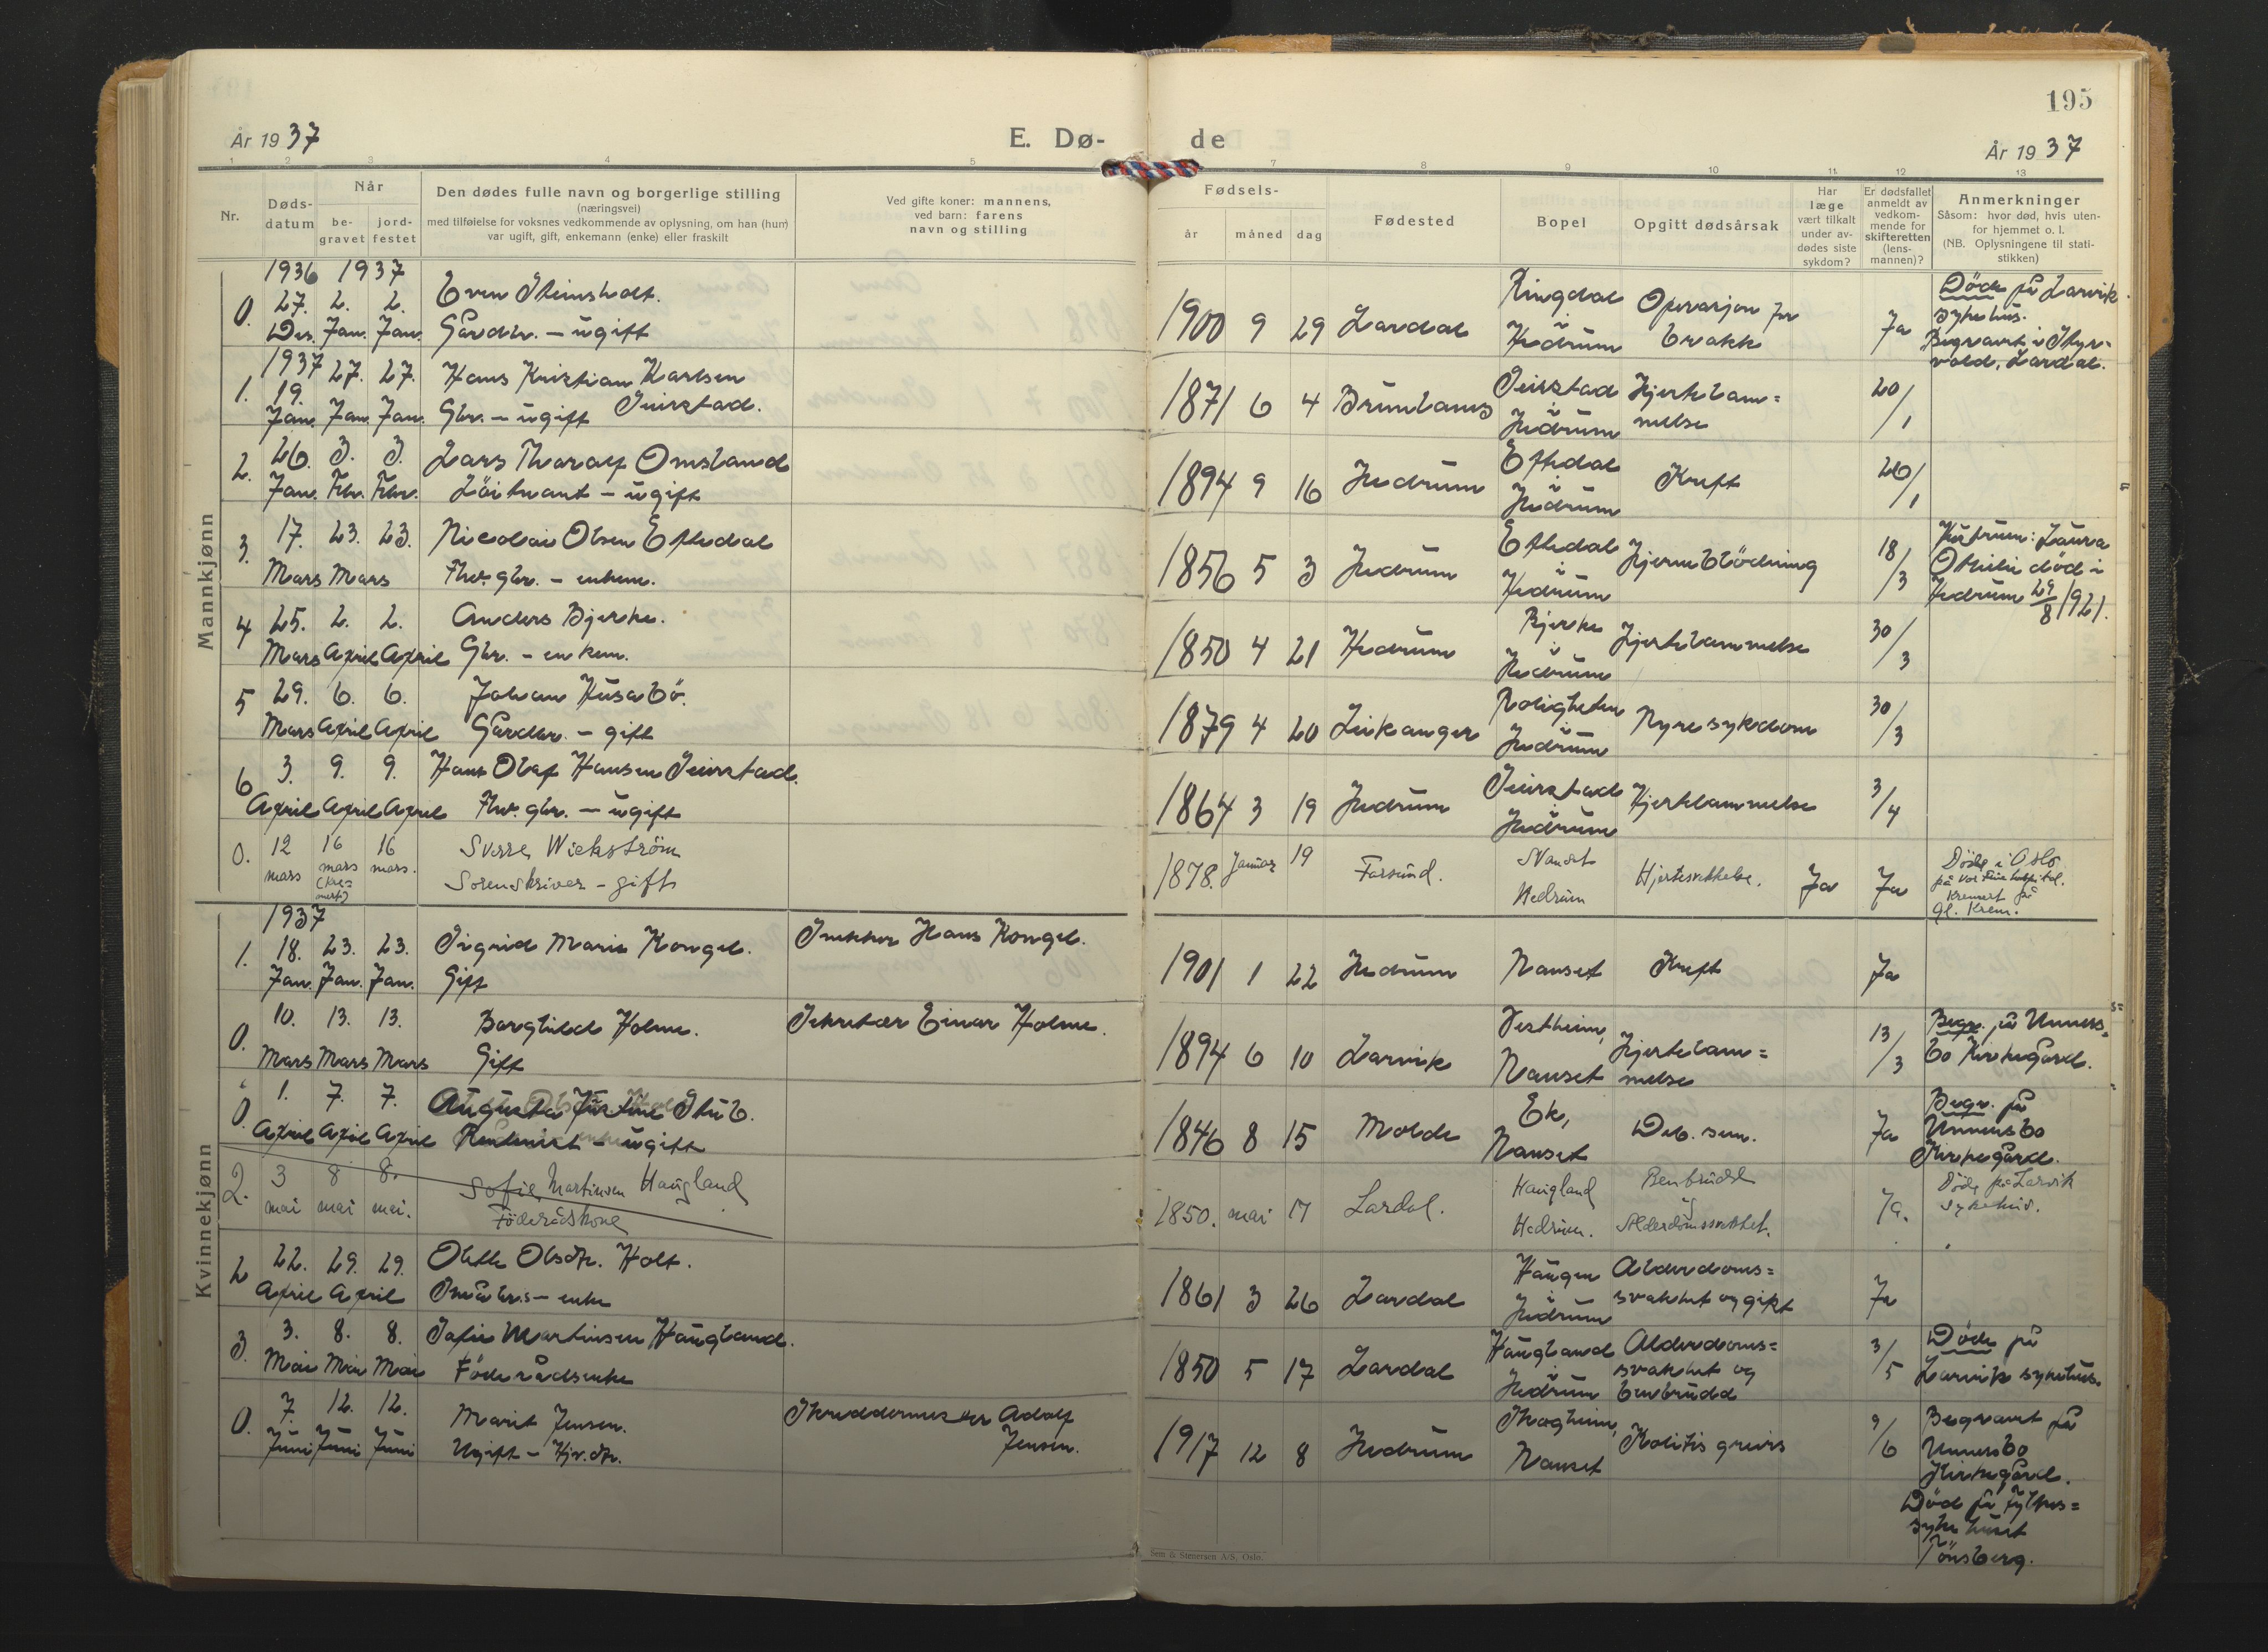 195
År 1937
E. Dø-
de
År 1937
1 2 3 4 5 7 8 9 10 11 12 13
Nr.
Døds-
datum
Når
be-
gravet
jord-
festet
Den dødes fulle navn og borgerlige stilling
(næringsvei)
med tilføielse for voksnes vedkommende av oplysning, om han (hun)
var ugift, gift, enkemann (enke) eller fraskilt
Ved gifte koner: mannens,
ved barn: farens
navn og stilling
Fødsels-
år måned dag
Fødested
Bopel
Opgitt dødsårsak
Har
læge
vært tilkalt
under av-
dødes siste
sykdom?
Er dødsfallet
anmeldt av
vedkom-
mende for
skifteretten
(lens-
mannen)?
Anmerkninger
Såsom: hvor død, hvis uten-
for hjemmet o. l.
(NB. Oplysningene til stati-
stikken)
Mannkjønn
1936 1937
0. 27. 2. 2. Even
Des. Jan. Jan. Gårdbr. - ugift
1900 9 29 Lardal
Ringdal
i
Hedrum
Operasjon for
brokk
Ja
Døde på Larvik
sykehus.
Begravet i Styr-
vold, Lardal.
1937
1. 19. 27. 27. Hans Kristian Karlsen
Jan. Jan. Jan. Gbr. - ugift Seierstad.
1871 6 4 Brunlanes
Seierstad
i
Hedrum
Hjertelam=
melse
20/1
2. 26. 3. 3. Lars Tharalf Omsland
Jan. Febr. Febr. Löitnant - ugift
1894 9 16 Hedrum
Eftedal
i
Hedrum
Kreft
26/1
3. 17. 23. 23. Nicolai Olsen Eftedal
Mars Mars Fhv. gbr. - enkem.
1856 5 3 Hedrum
Eftedal
i
Hedrum
Hjerneblödning
18/3
Hustruen: Laura
Otilie död i
Hedrum 29/8 1921.
4 25. 2. 2. Anders Bjerke.
Mars April April Gbr. - enkem.
1850 4 21 Hedrum
Bjerke
i
Hedrum
Hjertelammelse
30/3
5 29. 6. 6. Johan Husabö.
Mars April April Gårdbr. - gift
1879 4 20 Leikanger
Roligheten
i
Hedrum
Nyresykdom
30/3
6 3. 9. 9. Hans Olaf Hansen Seierstad.
April April April Fhv. gbr. - ugift
1864 3 19 Hedrum
Seierstad
i
Hedrum
Hjertelammelse
3/4
0. 12 16 16 Sverre Wickström
mars mars mars. Sorenskriver - gift
(kre-
mert)
1878. Januar 19 Farsund.
Nanset
Hedrum
Hjertesvekkelse.
Ja Ja
Döde i Oslo
på Vor Frue hospital.
Kremert på
Gl. Krem.
Kvinnekjønn
1937
1. 18. 23. 23. Sigrid Marie Kongel. Snekker Hans Kongel.
Jan. Jan. Jan. Gift
1901 1 22 Hedrum Nanset Kreft Ja
0. 10. 13. 13. Borghild Holme. Sekretær Einar Holme.
Mars Mars Mars Gift
1894 6 10 Larvik
Vestheim,
Nanset
Hjertelam=
melse
13/3
Begr. på Unners=
bo Kirkegård.
0. 1. 7. 7. Augusta Justine Stub.
April April April Rentenist - ugift
1846 8 15 Molde
Ek,
Nanset
Deb. sen.
Ja
Begr. på
Unnersbo
Kirkegård.
2. 3 8 8. Sofie Martinsen Haugland
mai mai mai. Föderådskone
1850. mai 17 Lardal.
Haugland
Hedrum.
Benbrudd
og
Alderdomssvekkelse.
Ja.
Döde på Larvik
sykehus.
2 22. 29. 29. Olette Olsdtr. Holt.
April April Småbr.s - enke
1861 3 26 Lardal
Haugen
i
Hedrum
Alderdoms=
svakhet og gikt
Ja
3. 3. 8. 8. Sofie Martinsen Haugland.
Mai Mai Mai Föderådsenke
1850 5 17 Lardal
Haugland
i
Hedrum
Alderdoms=
svakhet og
benbrudd
3/5
Döde på
Larvik sykehus.
0. 7. 12. 12. Marit Jensen. Skreddermester Adolf
Juni Juni Juni Ugift - Hjv. dtr. Jensen.
1917 12 8 Hedrum
Skogheim,
Nanset
Kolitis gravis
9/6
Begravet på
Unnersbo
Kirkegård.
Död på fylkes=
sykehuset
Tönsberg.
Sem & Stenersen A/S, Oslo.